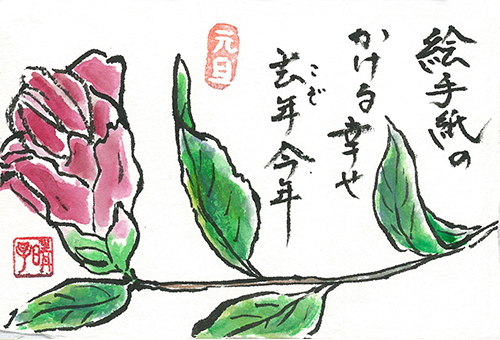 絵手紙の
かける幸せ
去年今年
こぞ
元旦
晴